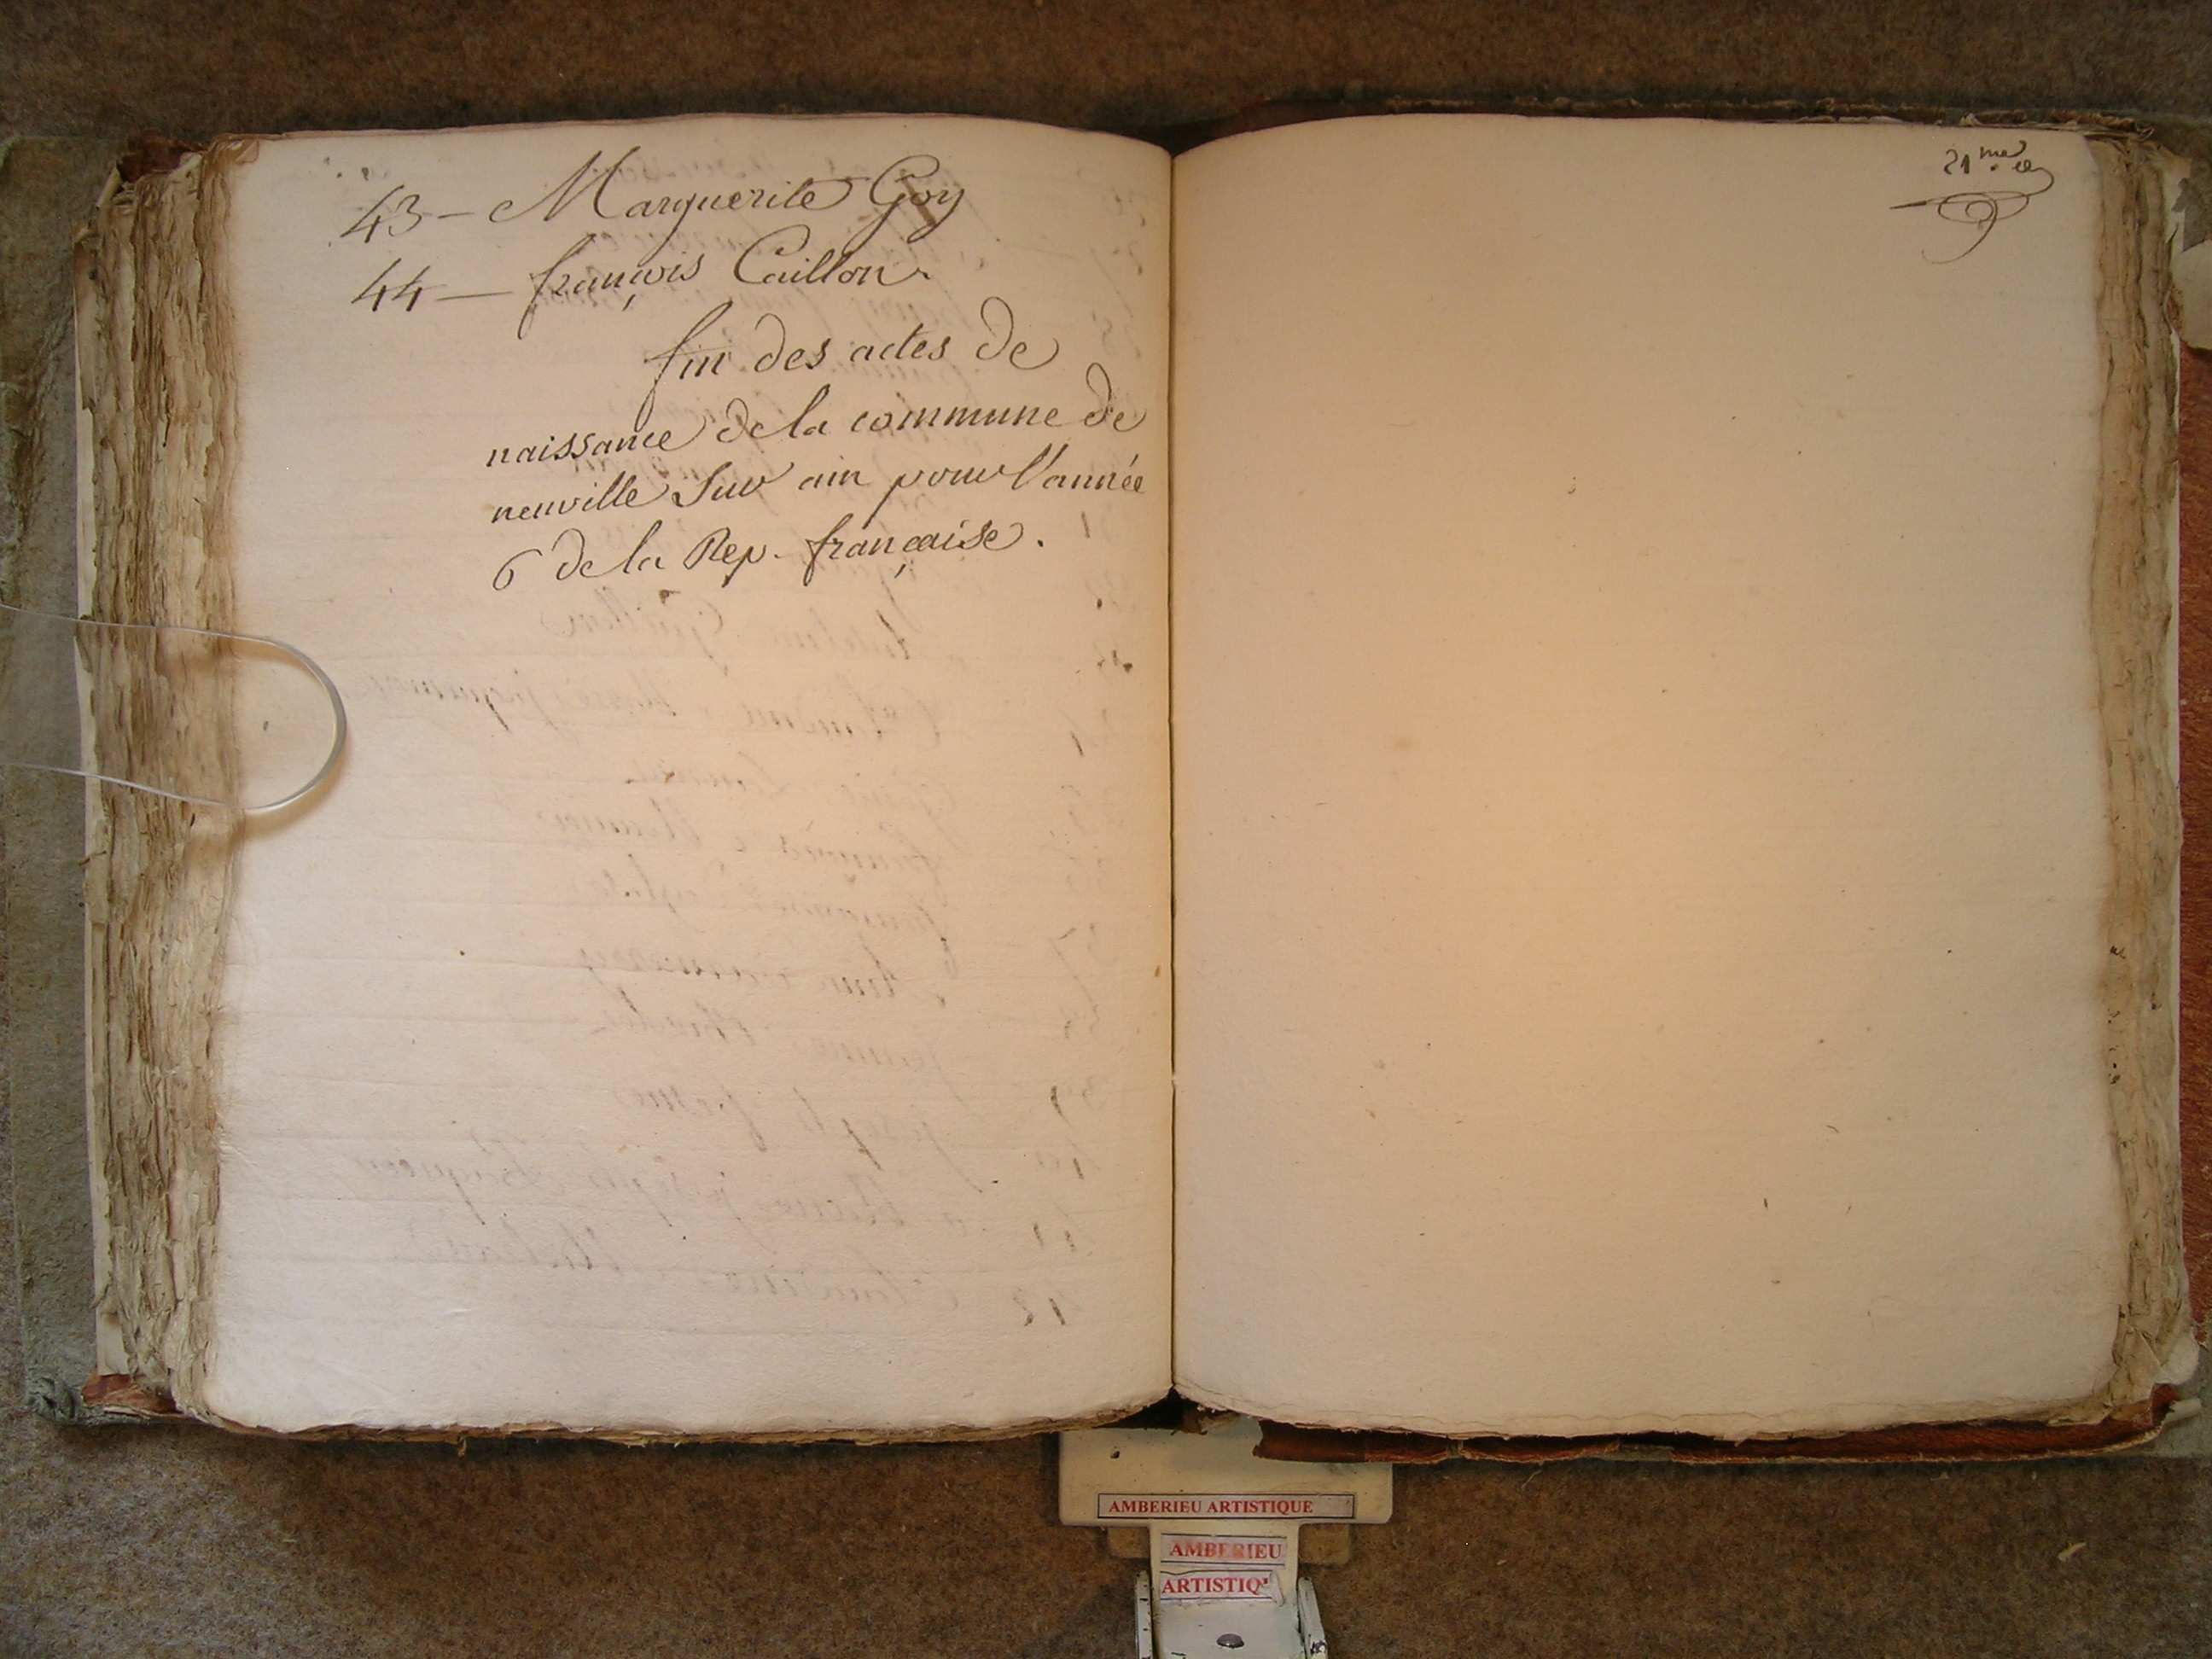 43 - Marguerite Goy
44 — françois Caillon.
fin des actes de
naissance de la commune de
neuville Sur ain pour l'année
6 de la Rep. française.
21me
AMBERIEU ARTISTIQUE
AMBERIEU
ARTISTIQ